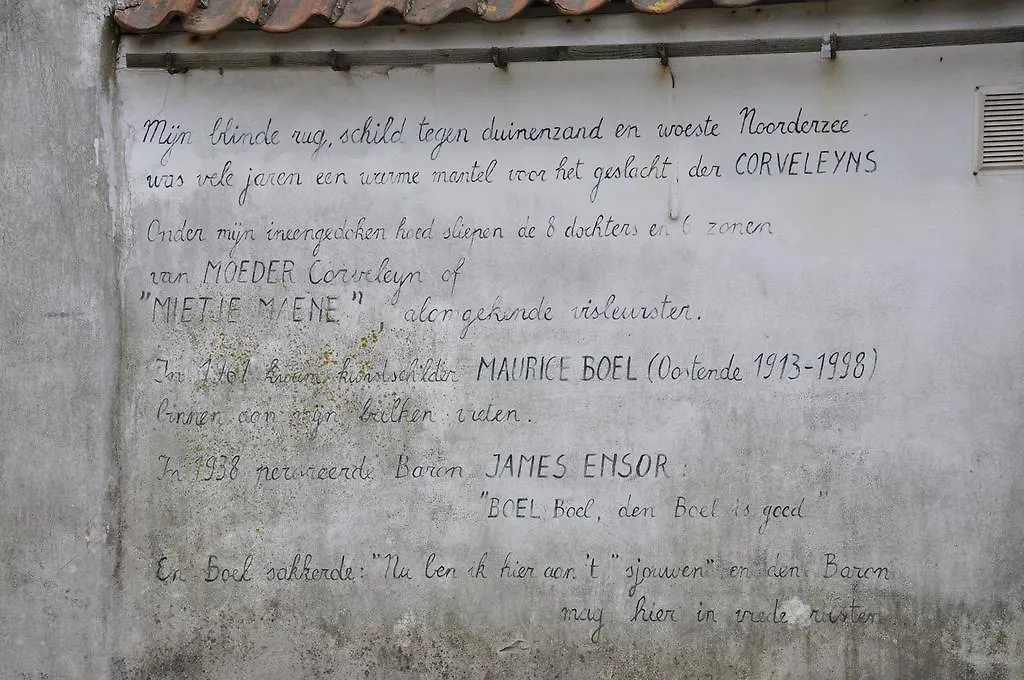 Mijn blinde rug, schild tegen duinenzand en woeste Noorderzee
was vele jaren een warme mantel voor het geslacht der CORVELEYNS
Onder mijn ineengedoken hoed sliepen de 8 dochters en 6 zonen
van MOEDER Corveleyn of
"MIETJE MENE", alomgekende visleurster.
In 1961 kwam kunstschilder MAURICE BOEL (Oostende 1913-1998)
binnen aan mijn balken
In 1938 Baron JAMES ENSOR:
"BOEL, Boel, den Boel is goed"
En Boel sakkerde: "Nu ben ik hier aan 't "sjouwen" en den Baron
mag hier in vrede rusten